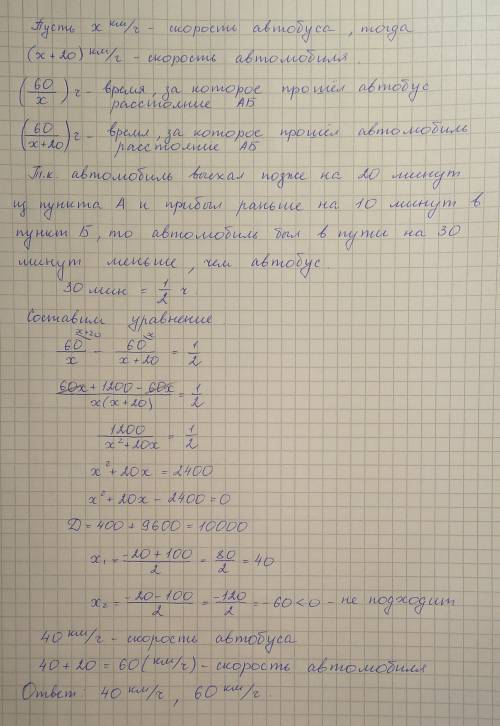 Пусть x км/ч - скорость автобуса, тогда
(x+20) км/ч - скорость автомобиля.
(60/x) ч - время, за которое прошёл автобус
расстояние АБ
(60/(x+20)) ч - время, за которое прошёл автомобиль
расстояние АБ
Т.к. автомобиль выехал позже на 20 минут
из пункта А и прибыл раньше на 10 минут в
пункт Б, то автомобиль был в пути на 30
минут меньше, чем автобус.
30 мин = 1/2 ч.
Составим уравнение
x+20 x
60/x - 60/(x+20) = 1/2
(60x + 1200 - 60x)/(x(x+20)) = 1/2
1200/(x²+20x) = 1/2
x²+20x = 2400
x²+20x - 2400 = 0
Д = 400 + 9600 = 10000
x₁ = (-20+100)/2 = 80/2 = 40
x₂ = (-20-100)/2 = -120/2 = -60 < 0 - не подходит
40 км/ч - скорость автобуса
40 + 20 = 60 (км/ч) - скорость автомобиля
Ответ: 40 км/ч, 60 км/ч.